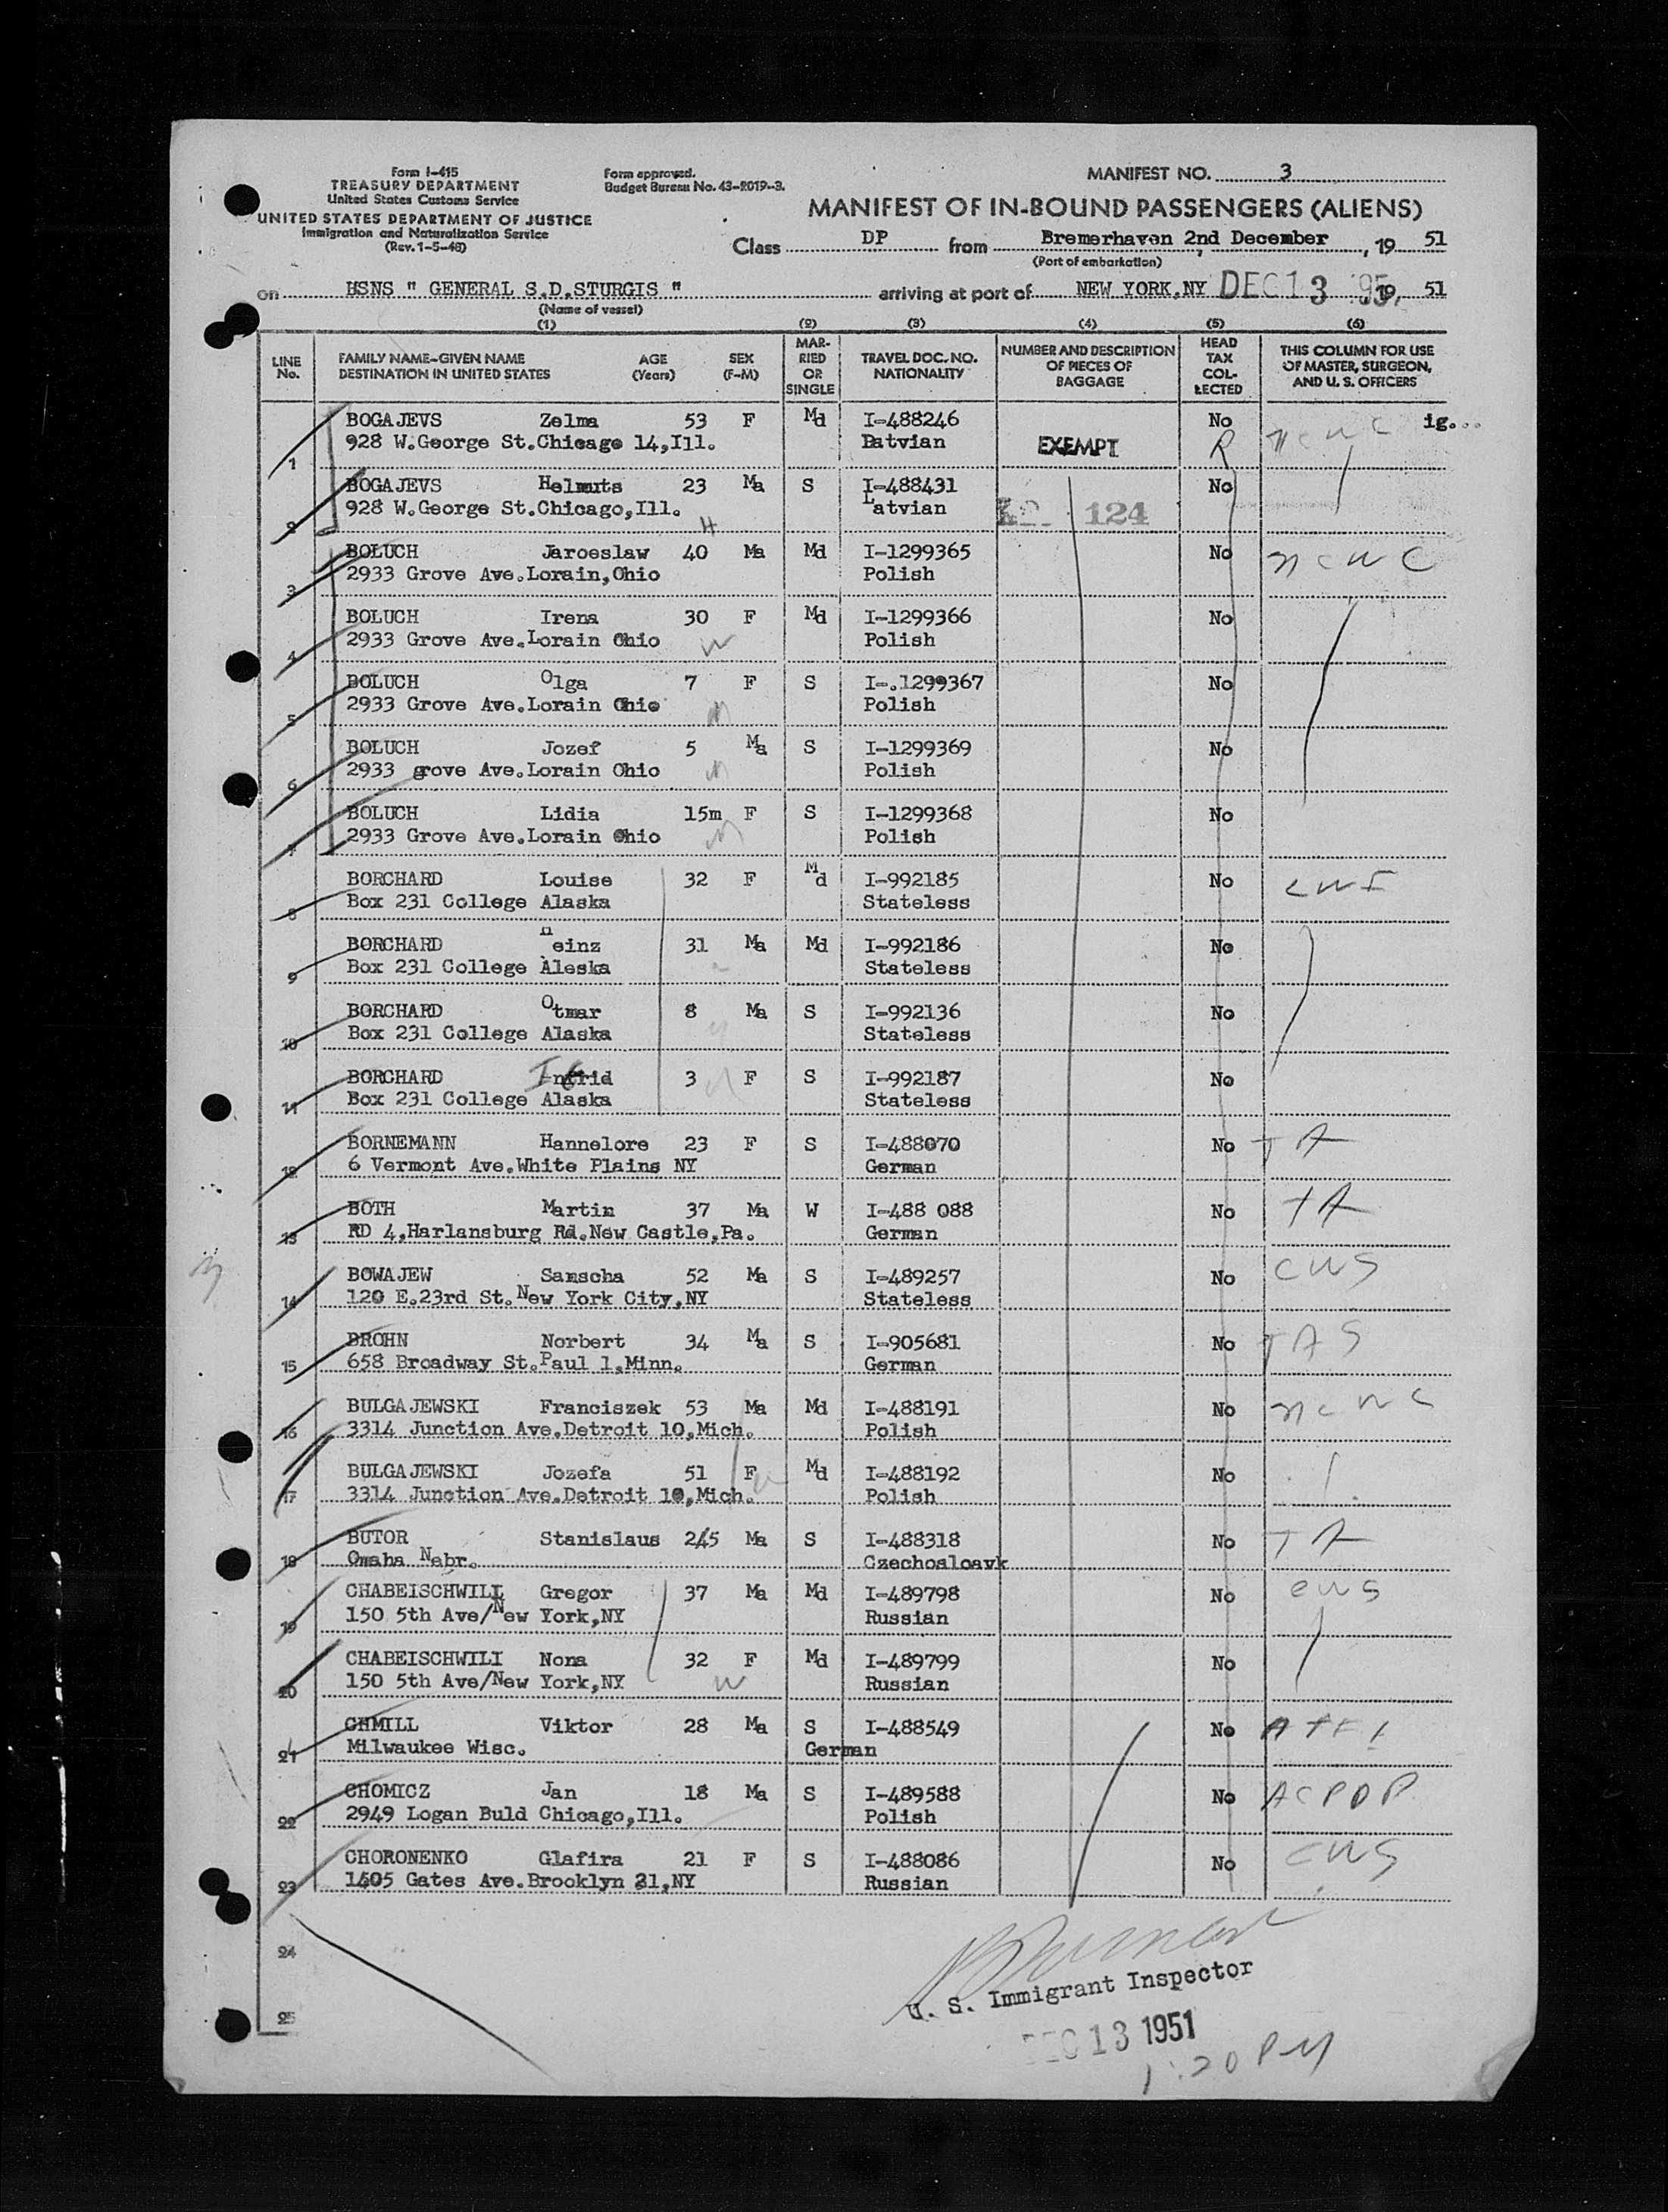 Form I-415
TREASURY DEPARTMENT
United States Customs Service
UNITED STATES DEPARTMENT OF JUSTICE
Immigration and Naturalization Service
(Rev. 1-5-48)
Form approved.
Budget Bureau No. 43-R019-3.
MANIFEST NO. 3
MANIFEST OF IN-BOUND PASSENGERS (ALIENS)
Class DP from Bremerhaven, 2nd December, 19 51
(Port of embarkation)
on HSNS " GENERAL S.D.STURGIS " arriving at port of NEW YORK,NY DEC 13 195 , 19 51
(Name of vessel)
(1) (2) (3) (4) (5) (6)
LINE No. FAMILY NAME-GIVEN NAME DESTINATION IN UNITED STATES AGE (Years) SEX (F-M) MARRIED OR SINGLE TRAVEL DOC. NO. NATIONALITY NUMBER AND DESCRIPTION OF PIECES OF BAGGAGE HEAD TAX COLLECTED THIS COLUMN FOR USE OF MASTER, SURGEON, AND U. S. OFFICERS
BOGAJEVS Zelma 53 F Md I-488246 No ncwc ig...
1 928 W.George St.Chicago 14,Ill. Latvian EXEMPT R
BOGAJEVS Helmuts 23 Ma S I-488431 No
2 928 W.George St.Chicago,Ill. Latvian 124
BOLUCH Jaroeslaw 40 Ma Md I-1299365 No ncwc
3 2933 Grove Ave.Lorain,Ohio Polish
BOLUCH Irena 30 F Md I-1299366 No
4 2933 Grove Ave.Lorain Ohio Polish
BOLUCH Olga 7 F S I-.1299367 No
5 2933 Grove Ave.Lorain Ohio Polish
BOLUCH Jozef 5 Ma S I-1299369 No
6 2933 grove Ave.Lorain Ohio Polish
BOLUCH Lidia 15m F S I-1299368 No
7 2933 Grove Ave.Lorain Ohio Polish
BORCHARD Louise 32 F Md I-992185 No
8 Box 231 College Alaska Stateless
BORCHARD Heinz 31 Ma Md I-992186 No
9 Box 231 College Aleska Stateless
BORCHARD Otmar 8 Ma S I-992136 No
10 Box 231 College Alaska Stateless
BORCHARD 3 F S I-992187 No
11 Box 231 College Alaska Stateless
BORNEMANN Hannelore 23 F S I-488070 No TA
12 6 Vermont Ave.White Plains NY German
BOTH Martin 37 Ma W I-488 088 No TA
13 RD 4,Harlansburg Rd.New Castle,Pa. German
BOWAJEW Sanscha 52 Ma S I-489257 No CWS
14 120 E.23rd St.New York City,NY Stateless
BROHN Norbert 34 Ma S I-905681 No TAS
15 658 Broadway St.Paul 1,Minn. German
BULGAJEWSKI Franciszek 53 Ma Md I-488191 No ncwc
16 3314 Junction Ave.Detroit 10,Mich. Polish
BULGAJEWSKI Jozefa 51 F Md I-488192 No
17 3314 Junction Ave.Detroit 10,Mich. Polish
BUTOR Stanislaus 245 Ma S I-488318 No TA
18 Omaha Nebr. Czechosloavk
CHABEISCHWILI Gregor 37 Ma Md I-489798 No CWS
19 150 5th Ave/New York,NY Russian
CHABEISCHWILI Nona 32 F Md I-489799 No
20 150 5th Ave/New York,NY Russian
CHMILL Viktor 28 Ma S I-488549 No
21 Milwaukee Wisc. German
CHOMICZ Jan 18 Ma S I-489588 No ACPDP
22 2949 Logan Buld Chicago,Ill. Polish
CHORONENKO Glafira 21 F S I-488086 No CWS
23 1405 Gates Ave.Brooklyn 21,NY Russian
24
25
U. S. Immigrant Inspector
DEC 13 1951
1:20 PM